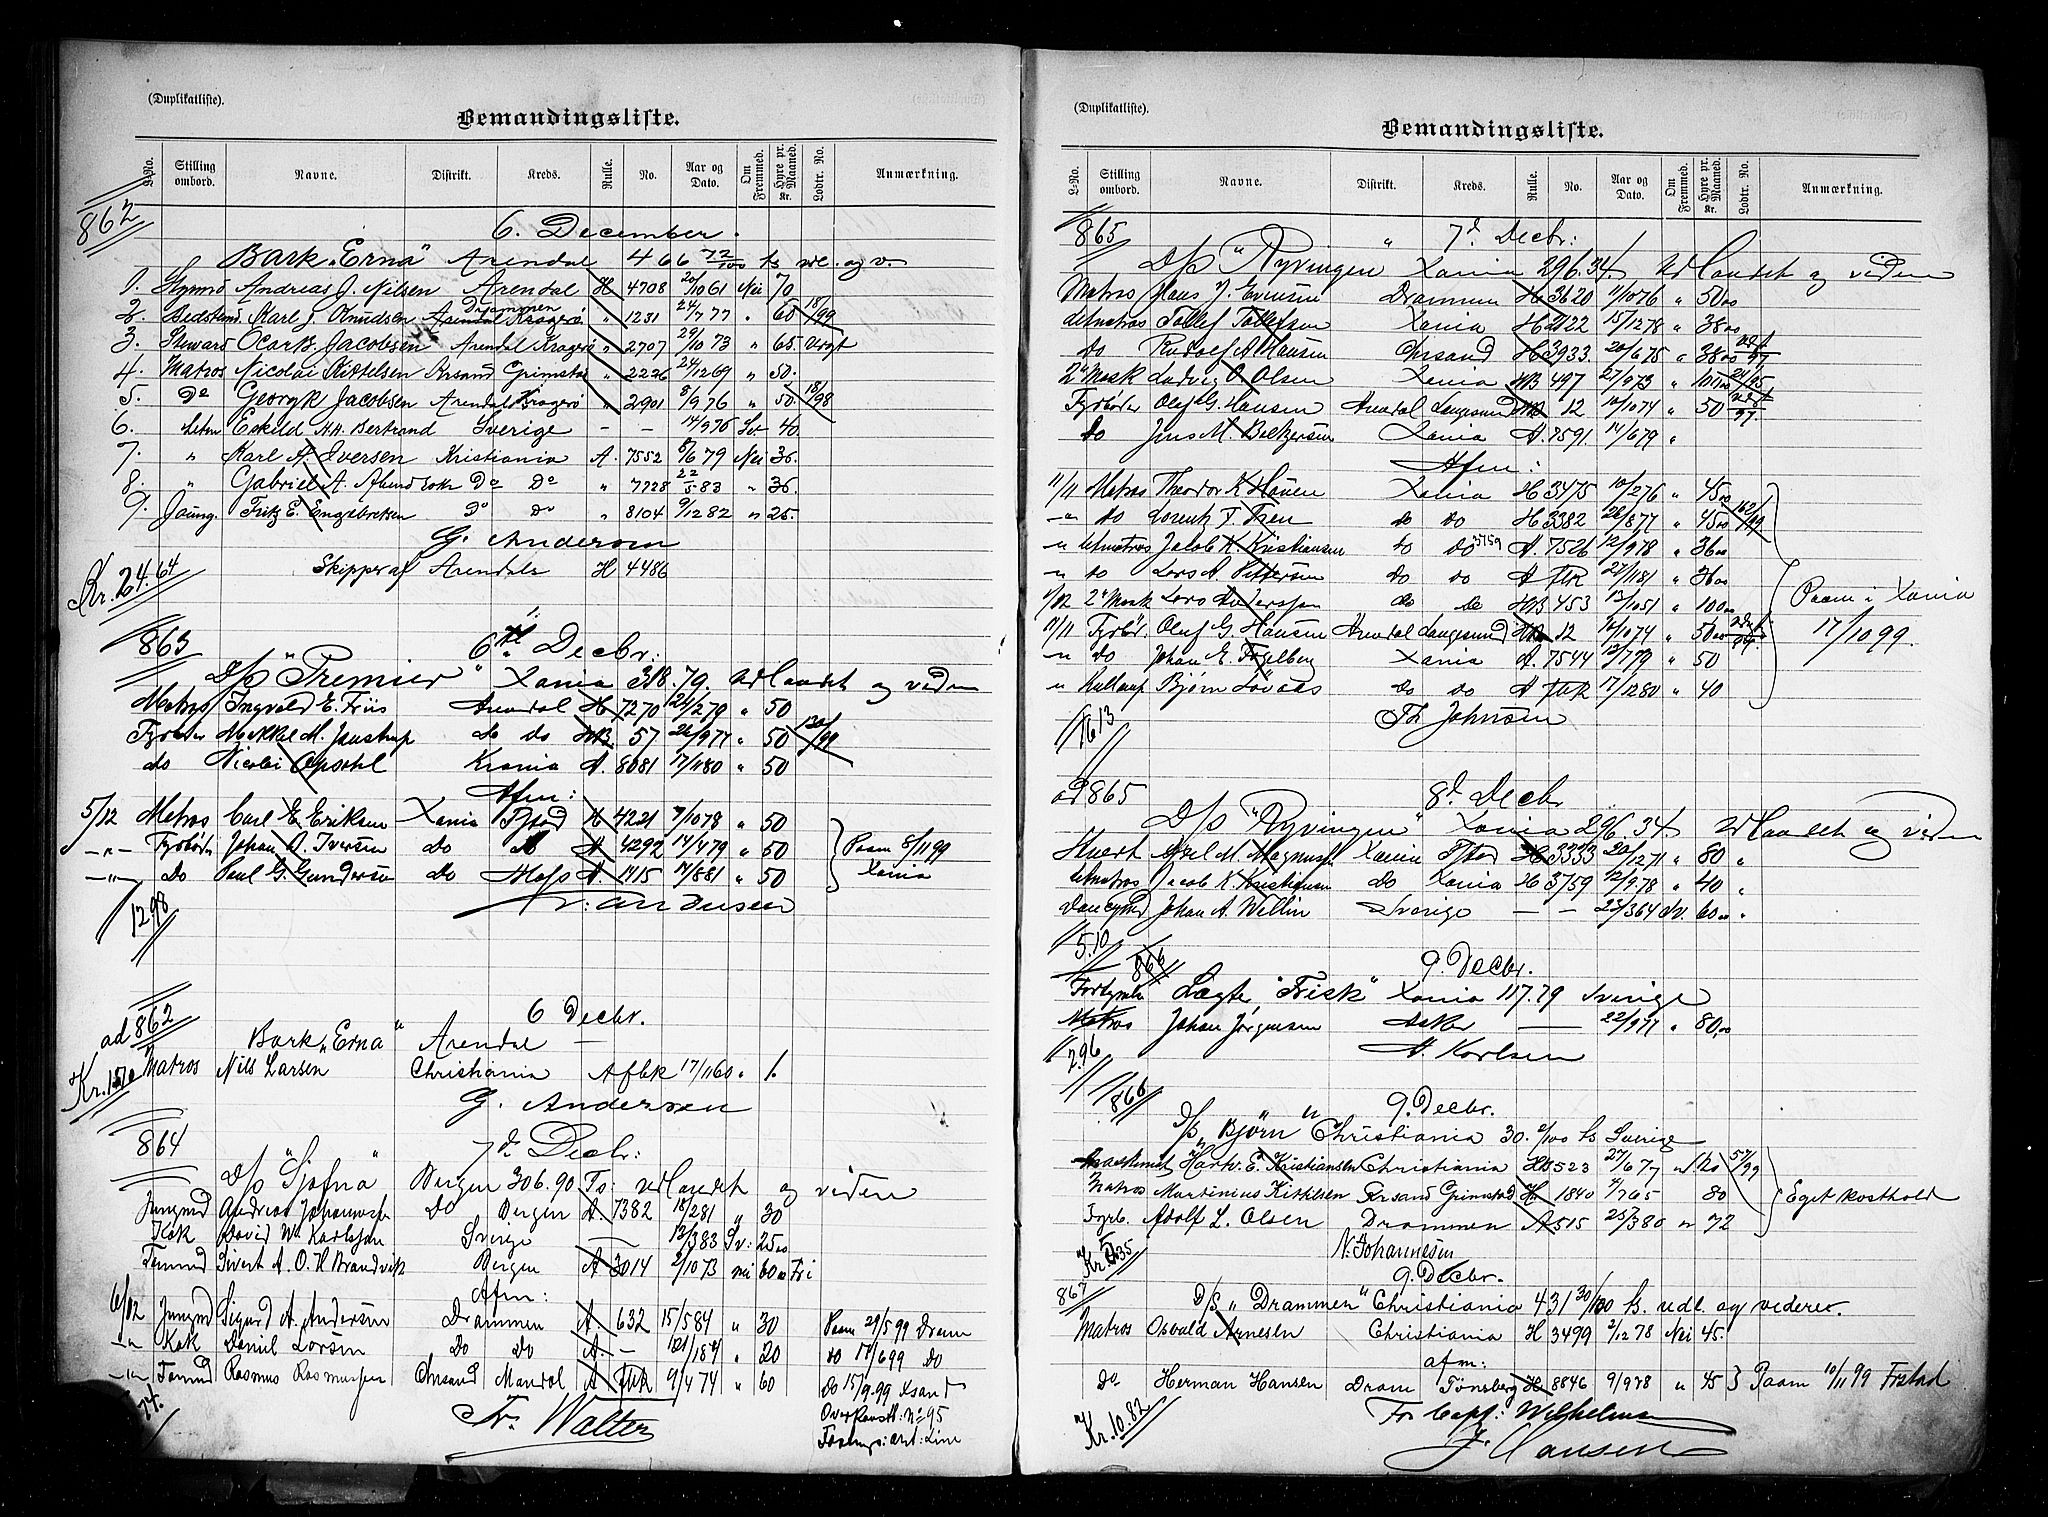 (Duplikatliste).
Bemandingsliste.
L-No. Stilling ombord. Navne. Distrikt. Kreds. Rulle. No. Aar og Dato. Om Fremmed. Hyre pr. Maaned. Kr. Lodtr. No. Anmærkning.
862
6. December.
Bark "Erna" Arendal 466 72/100 ts udl. og v.
1. Styrm Andreas J. Nilsen Arendal H 4708 20/10 61 Nei 70
2. Bedstmd. Karl J. Knudsen Drammen Arendal Kragerö " 1231 24/7 77 " 60 18/99
3. Steward Ocar B. Jacobsen Arendal Kragerö " 2707 29/10 73 " 65.
4. Matros Nicolai Kittelsen Krsand Grimstad " 2226 24/12 69 " 50.
5. Do Georg K Jacobsen Arendal Kragerö " 2901 8/9 76 " 50. 18/98
6. Letm Eskild A.H. Bertrand Sverige - - 14/9 76 Sv 40.
7. " Karl A. Iversen Kristiania A. 7552 8/6 79 Nei 36.
8. " Gabriel A. Do Do " 7728 22/5 83 " 36.
9. Joung. Fritz E. Engebretsen Do Do " 8104 9/12 82 " 25.
G. Anderson
Skipper af Arendal H 4486
Kr. 24.64
863
6te Decbr:
D/s "Premier" Xania 318.79 Udlandet og viden
Matros Ingvald E. Friis Arendal H 7270 26/2 79 " 50
Fyrbøder Mekkel M. Jenstrup do do HB. 57 26/9 77 " 50 130/99
do Nicolai Opsahl Krania A. 8081 17/11 80 " 50
Afm:
5/12 Matros Carl E. Eriksen Xania Fstad H 4221 7/10 78 " 50
-"- Fyrbøder Johan A. Iversen do do A 4292 14/4 79 " 50 Paam 8/11 99
-"- Do Paul G. Gundersen do Moss A. 1415 17/8 81 " 50 Xania
1298
ad 862
6 Decbr.
Bark "Erna" Arendal —
Matros Nils Larsen Christiania A fbk 17/11 60 " 1.
Kr. 1.50
G. Andersen
864
7de Decbr:
D/s "Sjofna" Bergen 306.90 Ts: Udlandet og videre
Jungmd Andreas Johannesn Do Bergen A. 7382 18/2 81 " 30
Kok David W. Karlsson Sverige — 12/3 83 Sv: 25.00
Tømmd Sivert A. O. H Brandvik Bergen A 3014 2/10 73 nei 60.00 Fri
Afm:
6/12 Jungmd Sigurd A. Andersen Drammen A 632 15/5 84 " 30 Paam 29/5 99 Dram
-"- Kok Daniel Larsen Do Do A. - 20 do 17/6 99 Do
-"- Tømmd Rasmus Rasmussen Chrsand Mandal A fbk 9/4 74 " 60 Do 15/9.99 Xsand
Fr. Walter
No 95
(Duplikatliste).
Bemandingsliste.
L-No. Stilling ombord. Navne. Distrikt. Kreds. Rulle. No. Aar og Dato. Om Fremmed. Hyre pr. Maaned. Kr. Lodtr. No. Anmærkning.
865
" 7d Decbr:
D/s "Ryvingen Xania 296.34. Udlandet og videre
Matros Hans J. Evensen Drammen H 3620 11/10 76 " 50.00
Letmatros Tollef Tollefsen Xania H 2122 15/12 78 " 38.00
do Rudolf A. Hansen Chrsand H 3933 20/6 75 " 38.00
2' Mask Ludvig O. Olsen Xania HB 497 27/9 73 " 105.00
Fyrbøder Oluf G. Hansen Arendal Langesund HB 12 10/10 74 " 50
do Jens M. Xania A. 8591 14/6 79 "
Afm:
11/11 Matros Theodor K. Xania H 3475 10/2 76 " 45.00
-"- do Lorentz T. do do H 3382 26/8 77 " 45.00 162/99
-"- Letmatros Jacob K. Kristiansen do do 3759 A. 7526 12/9 78 " 36.00
-"- do Lars A. Pettersen do do A fbk 27/11 81 " 36.00
1/12 2' Mask Lars Anderssen do do HB 453 13/10 51 " 100.00 Paam i Xania
11/11 Fyrbød. Oluf G. Hansen Arendal Langesund HB 12 10/10 74 " 50.00 17/10 99.
-"- do Johan E. Fogelberg Xania A. 7544 12/7 79 " 50
" Kullemp Bjørn Lövaas do do A fbk 17/12 80 " 40
Th. Johnsen
1613
ad 865
8d. Decbr
D/s "Ryvingen" Xania 296.34 Udlandet og viden
Stuert Axel M. Magnussen Xania Fstad H 3333 20/12 71 " 80 "
Letmatros Jacob K. Kristiansen do Xania H 3759 12/9.78 " 40 "
Johan A. Wellin Sverige — - 23/3 64 Sv. 60.00 "
5.10
866
9. Decbr.
Lægter "Frisk" Xania 117.79 Sverige
Matros Johan Jörgensen Asker — 22/9 77 " 80.00
A. Karlsen
2.96
866
9. Decbr.
D/s "Björn" Christiania 30. ts Sverige
Maskinist Hartv. E. Kristiansen Christiania HB 523 27/6 77 " 120 57/99
Matros Martinius Kittelsen Krsand Grimstad H 1840 4/7 65 80 Eget kosthold
Fyrb. Adolf L. Olsen Drammen A 515 25/3 80 " 72
Kr. 5.35
N. Johannesen
867
9. Decbr.
D/s "Drammen" Christiania 431 30/100 ts. udl. og videre.
Matros Osvald Arnesen Christiania H 3499 2/12 78 Nei 45.
afm:
Do Herman Hansen Dram Tönsberg H 8846 9/9 78 " 45 Paam 10/11 99 Frstad
Kr. 10.82
For Capt: Wilhelmsen
J. Hansen